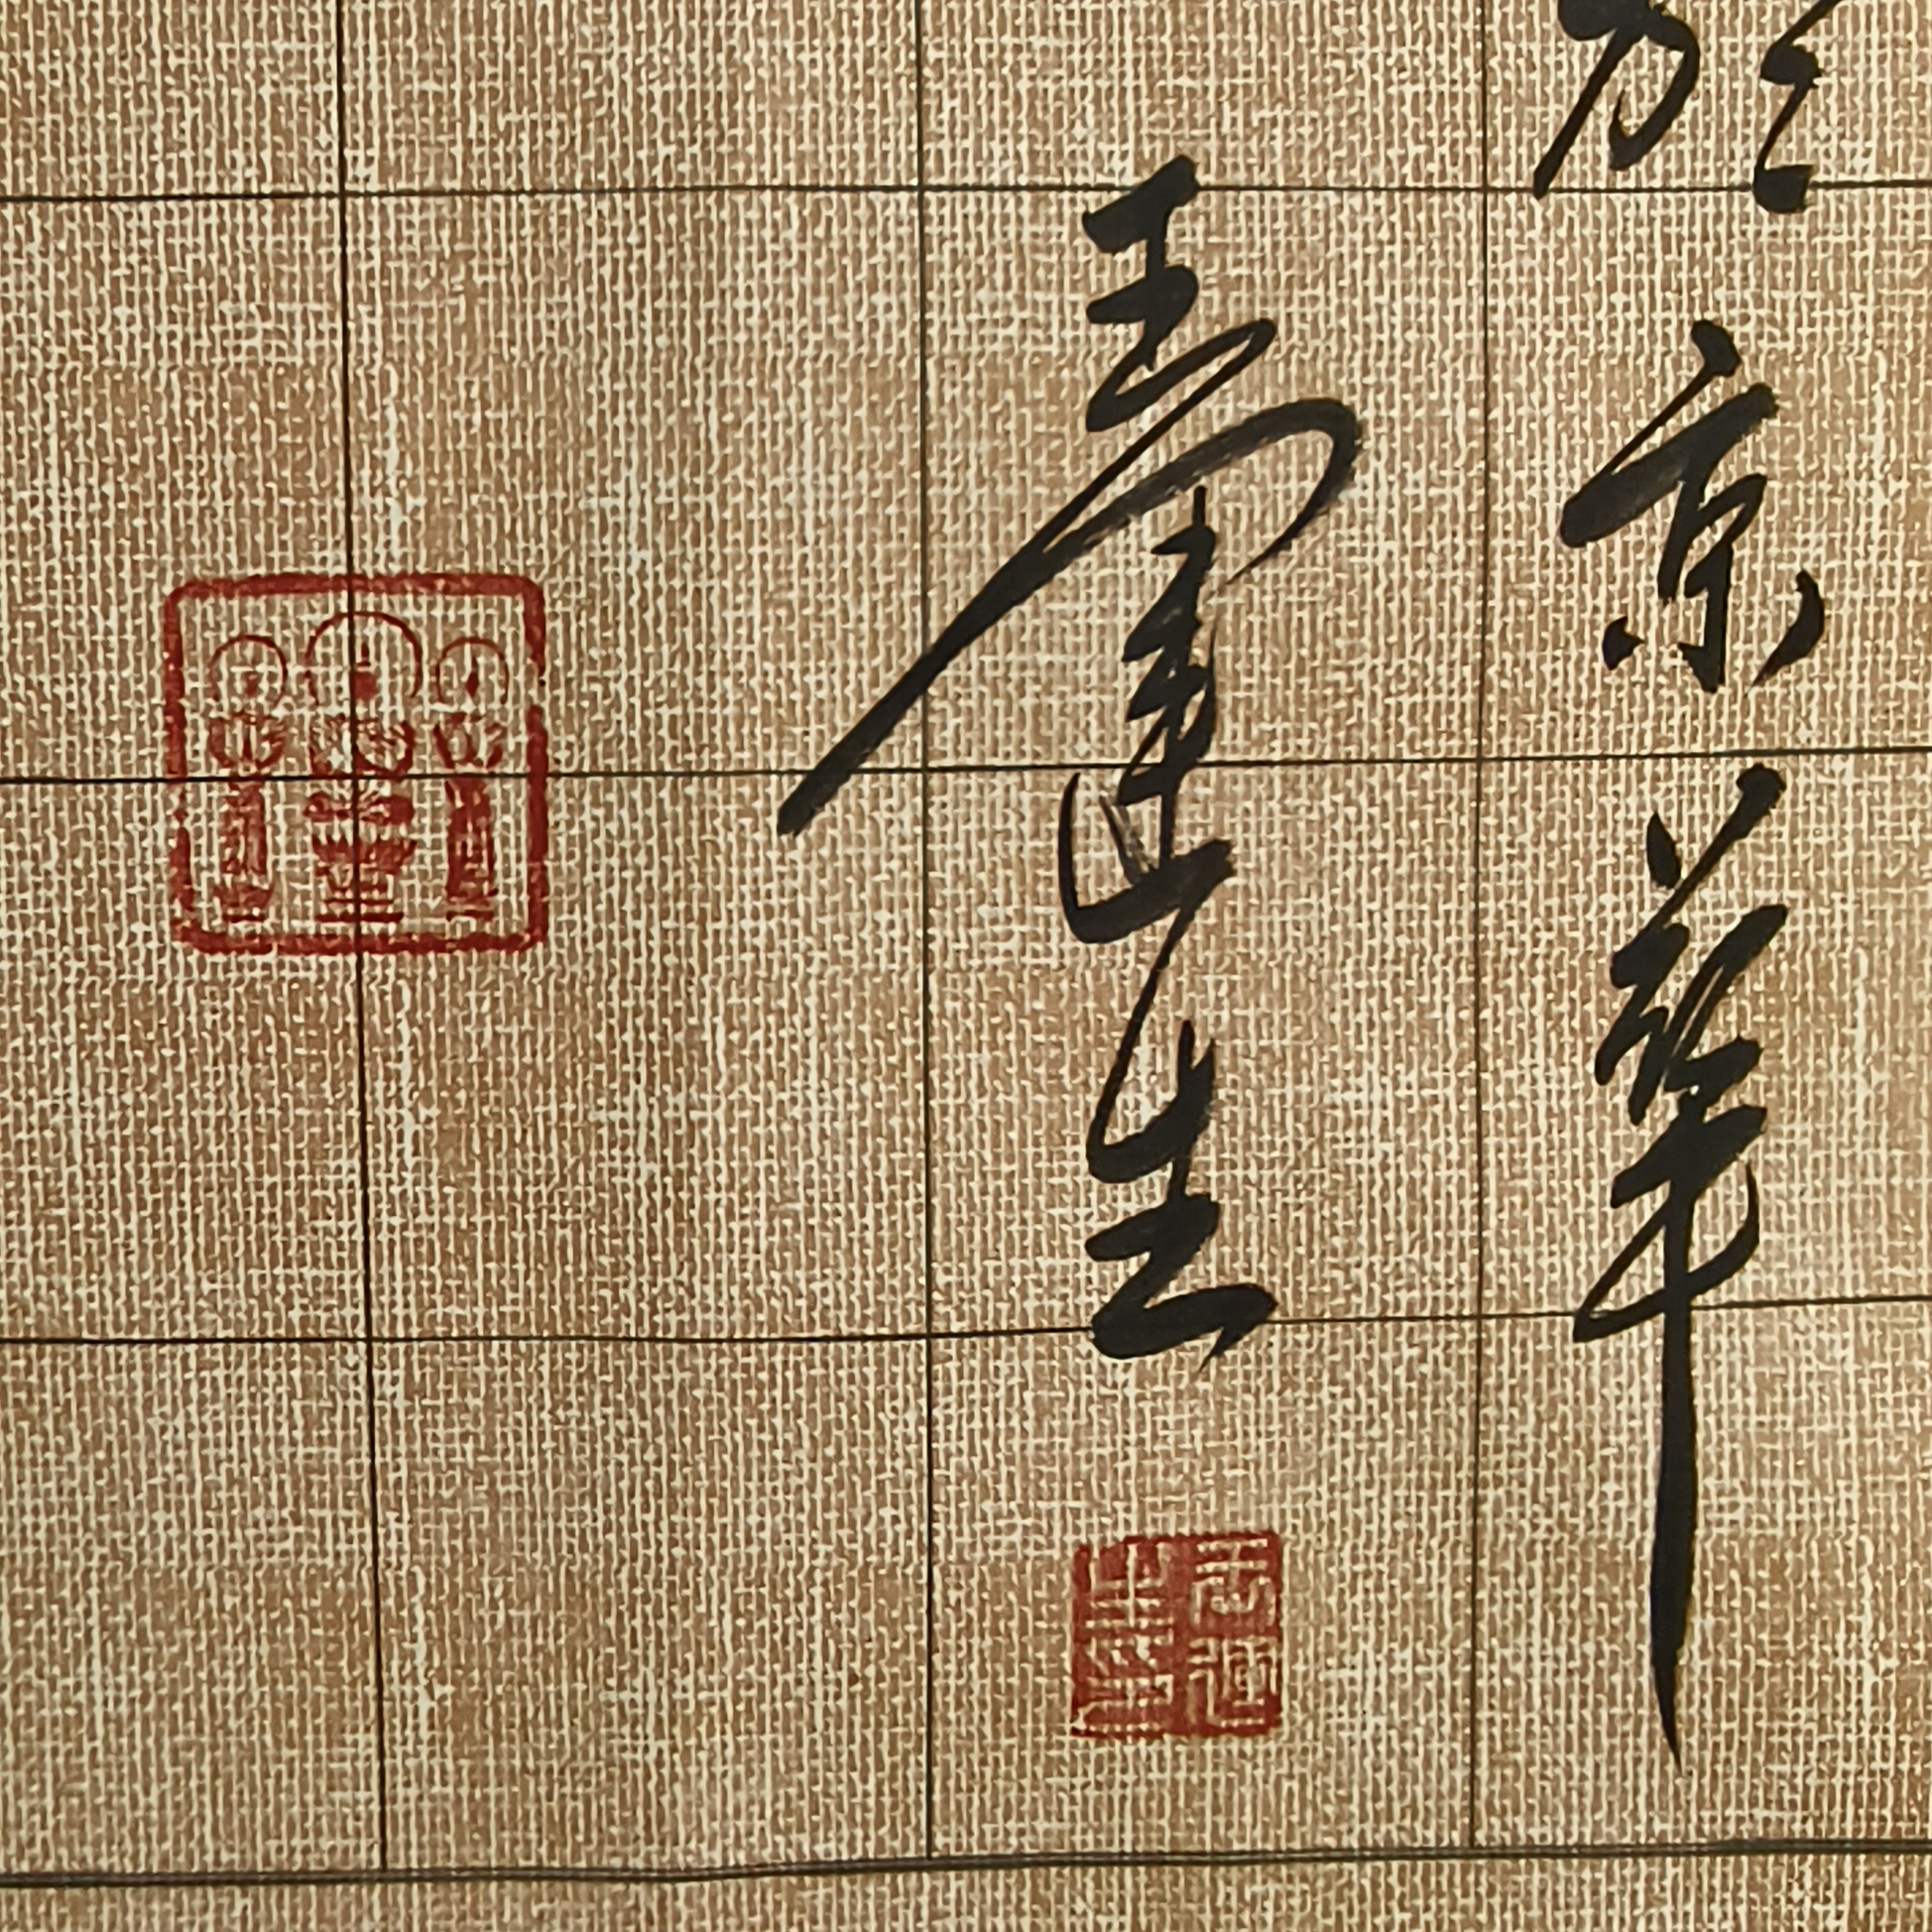 於京華
王運生
王運生印